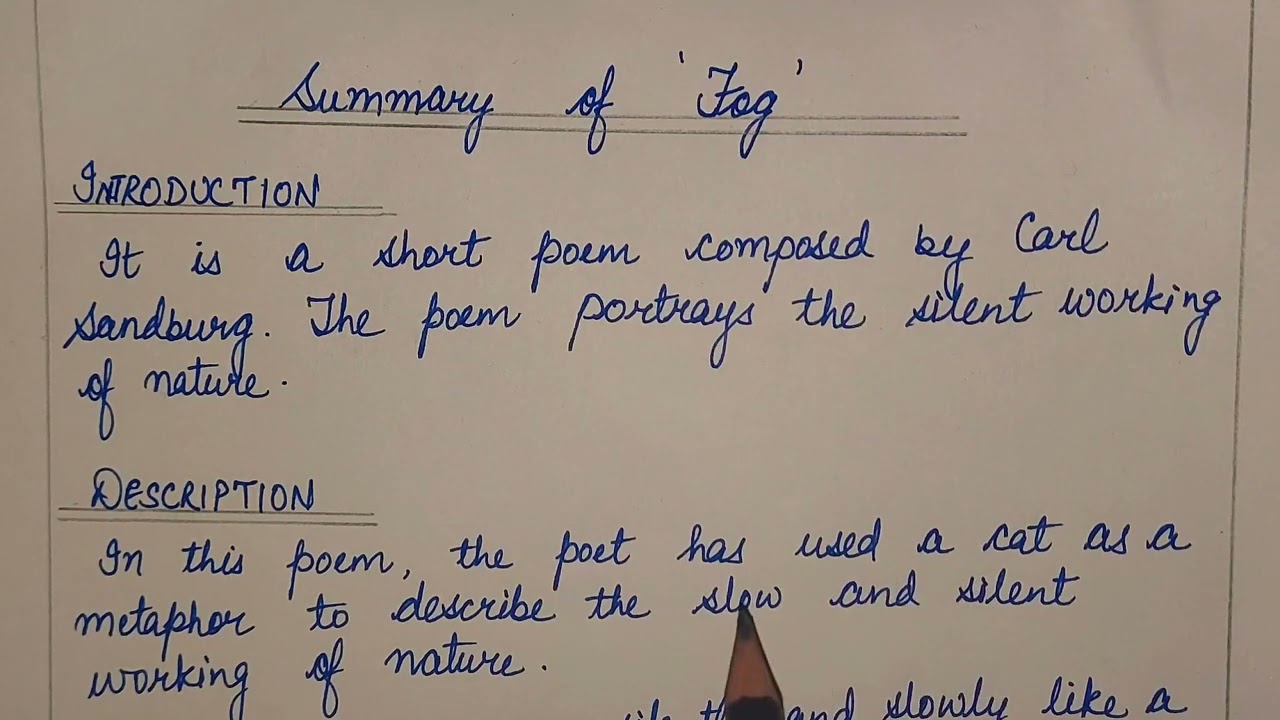 Summary of 'Fog'
INTRODUCTION
It is a short poem composed by Carl
Sandburg. The poem portrays the silent working
of nature.
DESCRIPTION
In this poem, the poet has used a cat as a
metaphor to describe the slow and silent
working of nature.
and slowly like a